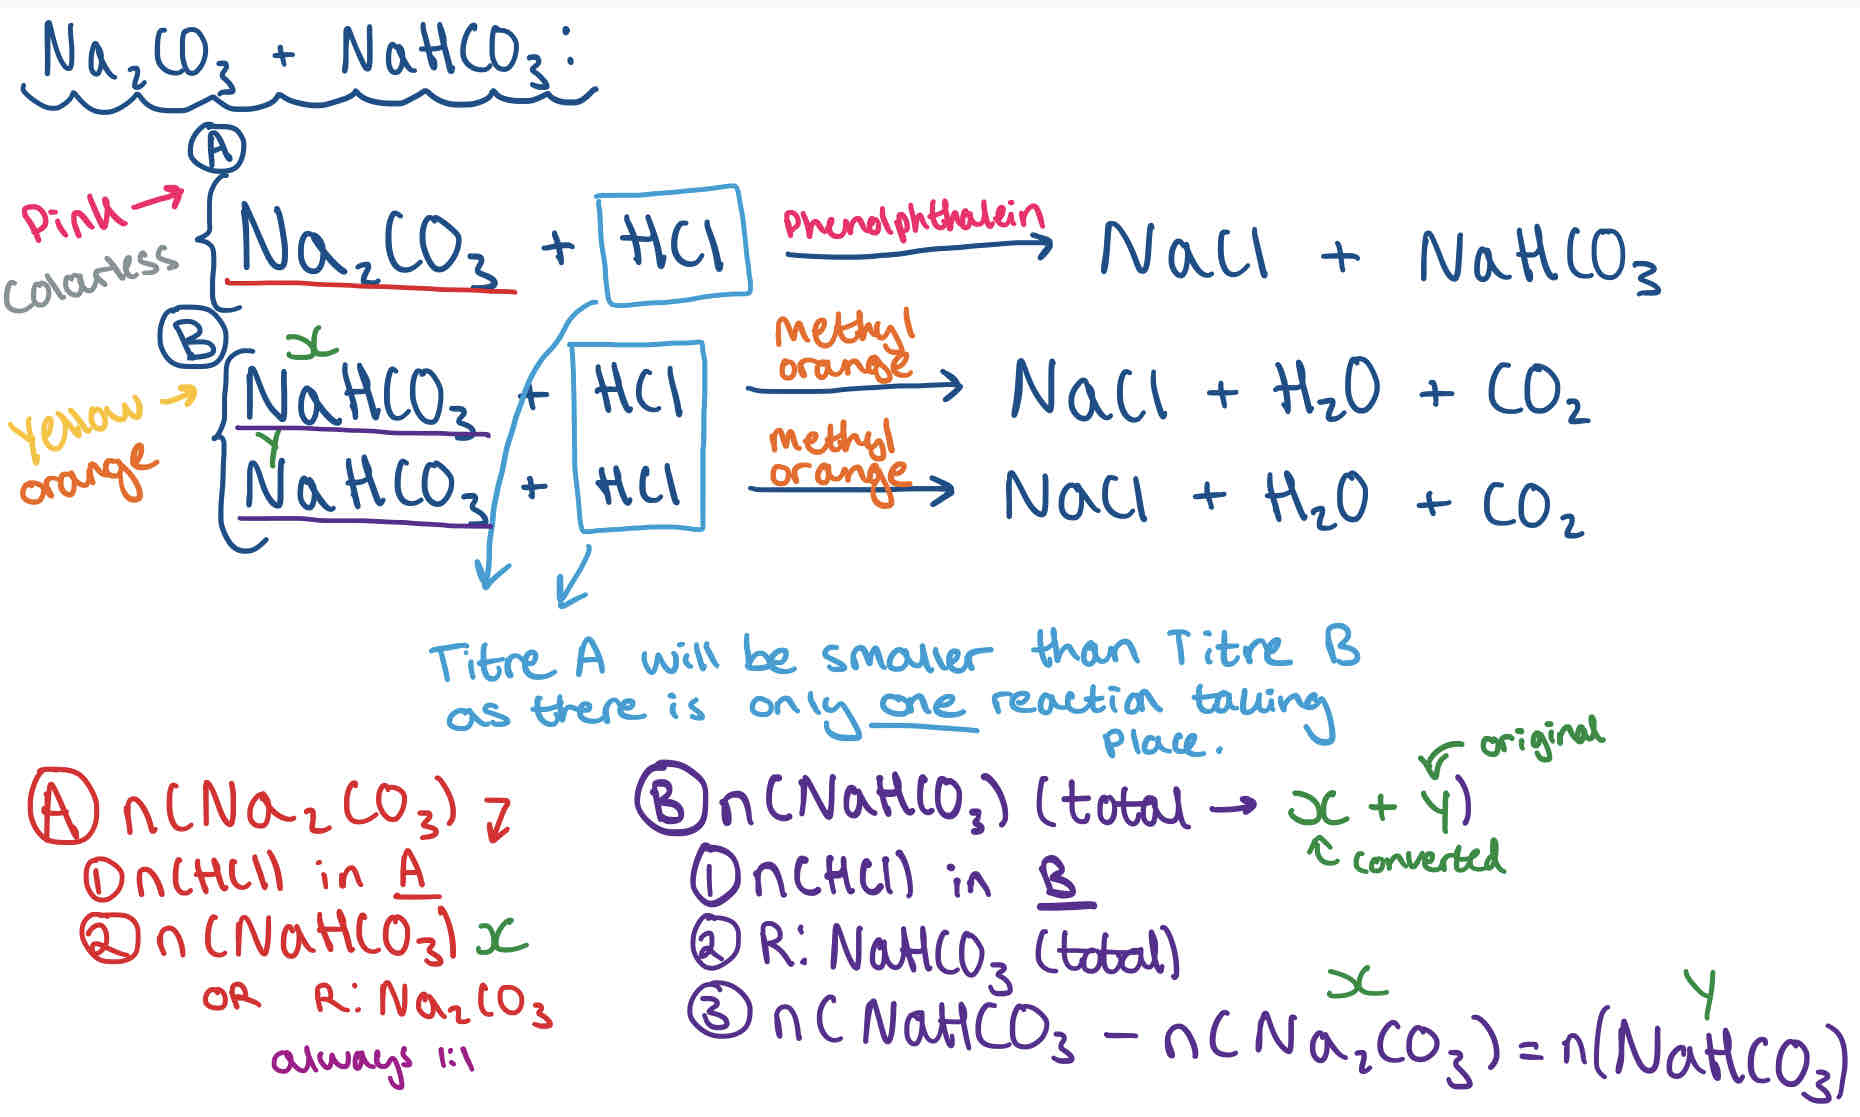 Na₂CO₃ + NaHCO₃:
A
Pink → Na₂CO₃ + HCl Phenolphthalein → NaCl + NaHCO₃
Colarless
B
x
Yellow → NaHCO₃ + HCl methyl orange → NaCl + H₂O + CO₂
orange
Y
NaHCO₃ + HCl methyl orange → NaCl + H₂O + CO₂
Titre A will be smaller than Titre B
as there is only one reaction taking
place.
A n(Na₂CO₃)
① n(HCl) in A
② n(NaHCO₃) x
OR R: Na₂CO₃
always 1:1
original
B n(NaHCO₃) (total → x + y)
converted
① n(HCl) in B
② R: NaHCO₃ (total)
x Y
③ n(NaHCO₃ - n(Na₂CO₃) = n(NaHCO₃)